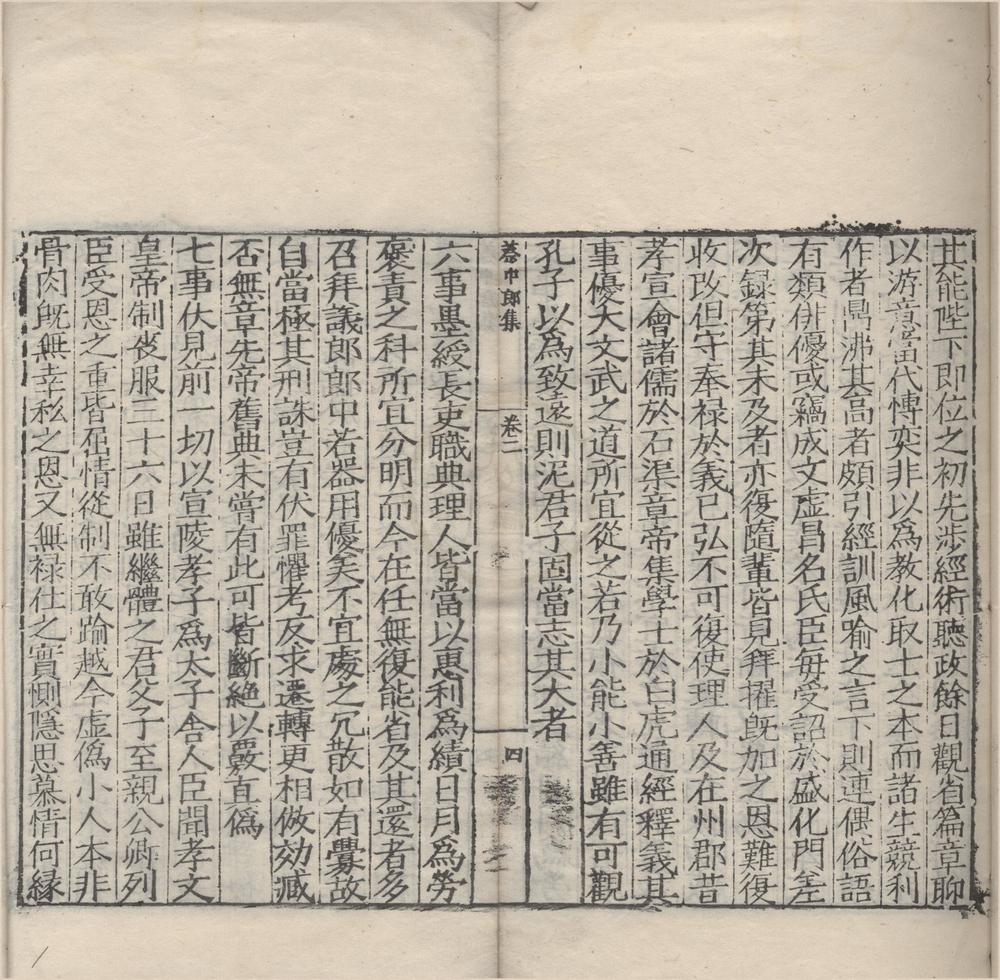 其能陛下即位之初先涉經術聽政餘日觀省篇章聊
以游意當代愽奕非以爲教化取士之本而諸生競利
作者鼎沸其高者頗引經訓風喻之言下則連偶俗語
有類俳優或竊成文虛冒名氏臣每受詔於盛化門差
次録第其未及者亦復隨輩皆見拜擢既加之恩難復
收改但守奉禄於義已弘不可復使理人及在州郡昔
孝宣會諸儒於石渠章帝集學士於白虎通經釋義其
事優大文武之道所宜從之若乃小能小善雖有可觀
孔子以為致遠則泥君子固當志其大者
蔡中郎集
卷二
四
六事墨綬長吏職典理人皆當以惠利爲績日月爲勞
褒責之科所宜分明而今在任無復能省及其還者多
召拜議郎郎中若器用優美不宜處之冗散如有釁故
自當極其刑誅豈有伏罪懼考反求遷轉更相倣効臧
否無章先帝舊典未嘗有此可皆斷絶以覈真僞
七事伏見前一切以宣陵孝子爲太子舎人臣聞孝文
皇帝制喪服三十六日雖繼體之君父子至親公卿列
臣受恩之重皆屈情從制不敢踰越今虛僞小人本非
骨肉旣無幸私之恩又無禄仕之實惻隱思慕情何縁